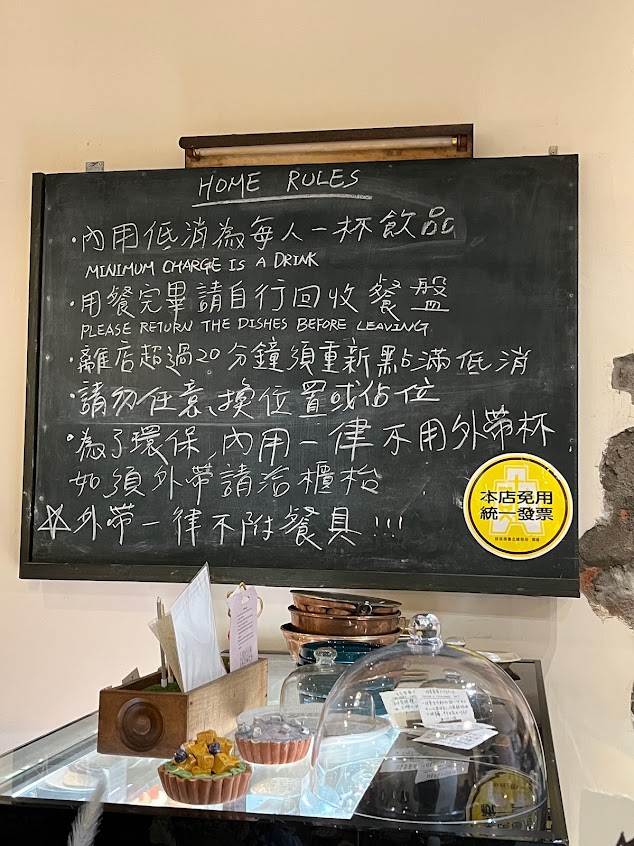 HOME RULES
·內用低消為每人一杯飲品
MINIMUM CHARGE IS A DRINK
·用餐完畢請自行回收餐盤
PLEASE RETURN THE DISHES BEFORE LEAVING
·離店超過20分鐘須重新點滿低消
·請勿任意換位置或佔位
·為了環保,內用一律不用外帶杯
如須外帶請洽櫃枱
☆外帶一律不附餐具!!!
本店免用
統一發票